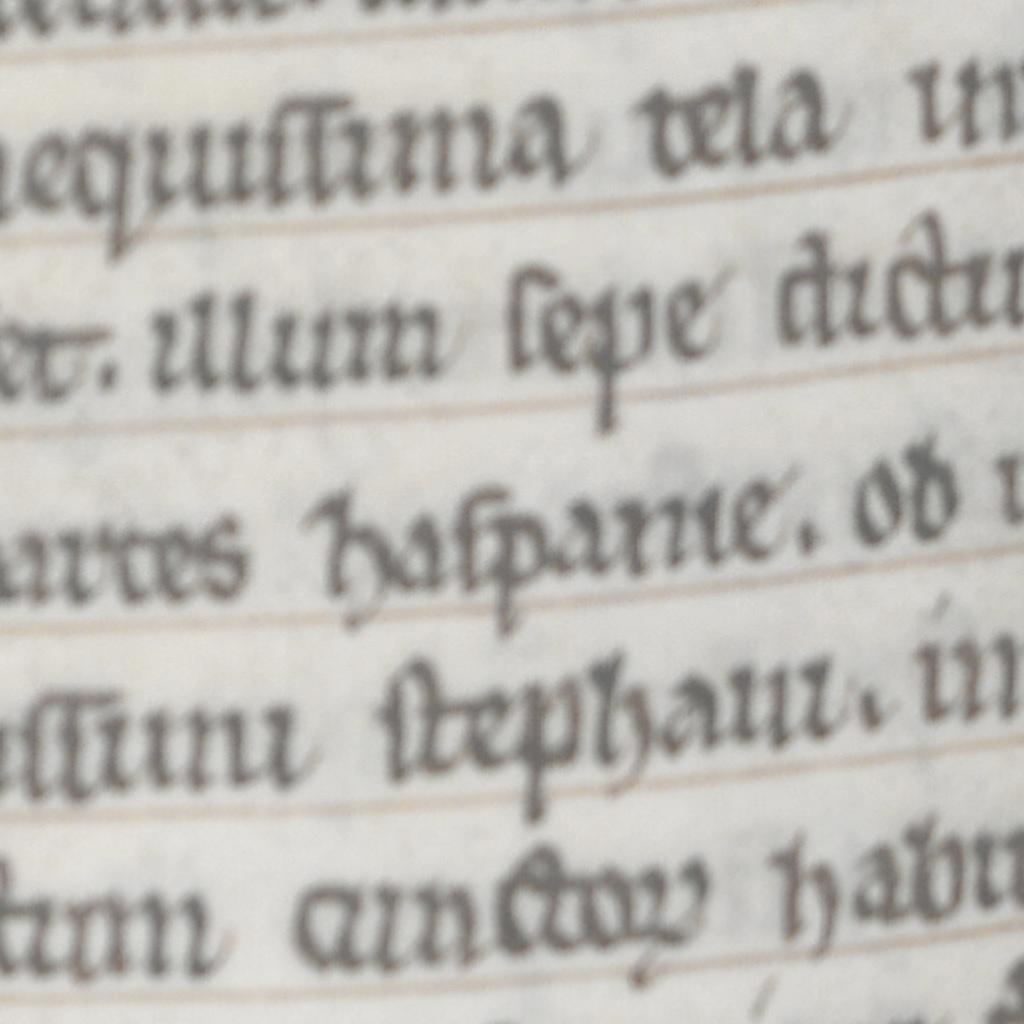 nequissima tela in
et. illum sepe dictu
partes hispanie. ob
issimi stephani. in
tum cunctoꝝ habu